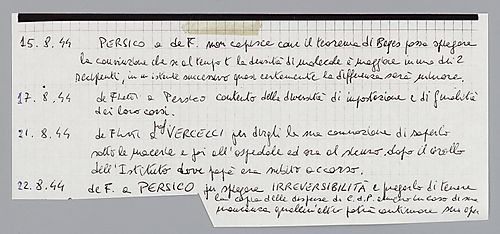 15.8.44 PERSICO a de F. non capisce come il teorema di Bayes possa spiegare
la convinzione che se al tempo t la densità di molecole è maggiore in uno dei 2
recipienti, in istante successivo quasi certamente la differenza sarà minore.
17.8.44 de Finetti a Persico contento della diversità di impostazione e di finalità
dei loro corsi.
21.8.44 de Finetti VERCELLI per dirgli la sua convinzione di saperlo
sotto le macerie e poi all'ospedale ed ora al sicuro, dopo il crollo
dell'Istituto dove papà era subito accorso.
22.8.44 de F. a PERSICO per spiegare IRREVERSIBILITÀ e pregarlo di tenere
una copia delle dispense di C.d.P. in caso di sua
mancanza qualcun altro potrà continuare